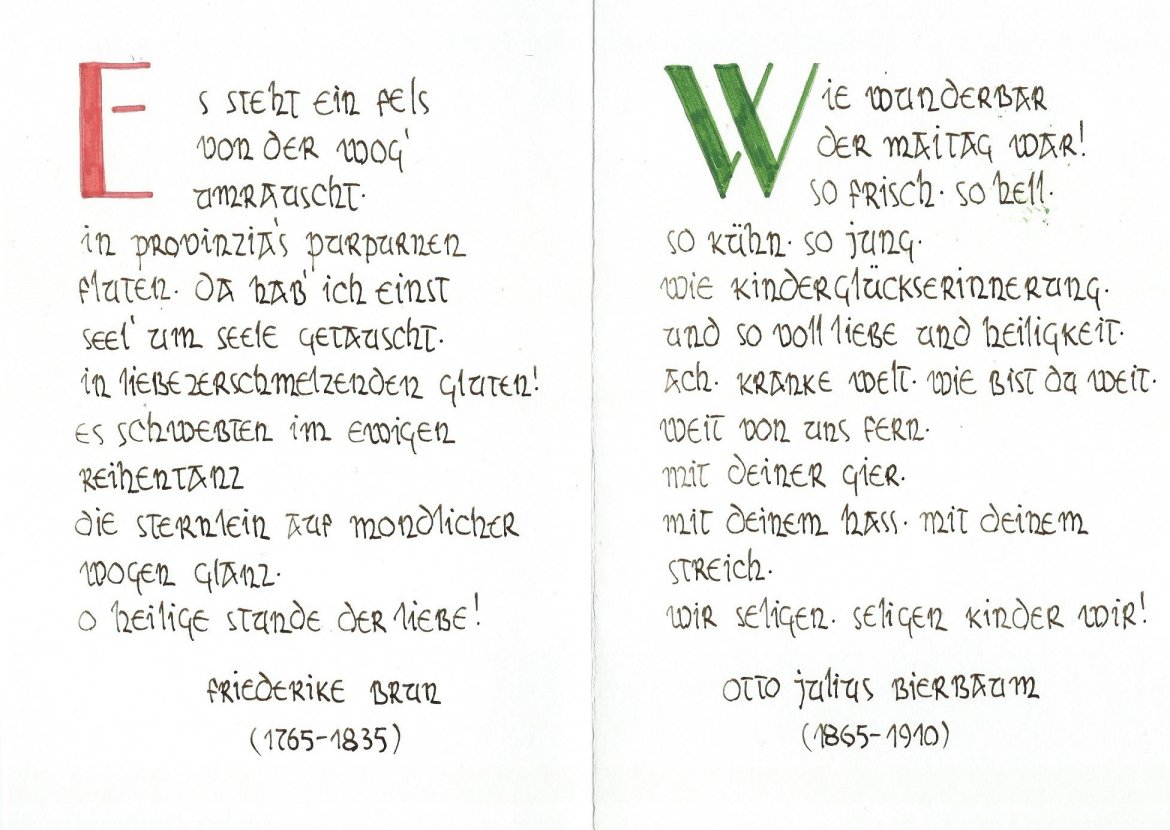 Es steht ein fels
von der wog'
umrauscht·
in provinzia's purpurnen
fluten· da hab' ich einst
seel' um seele getauscht·
in liebezerschmelzenden gluten!
es schwebten im ewigen
reihentanz
die sternlein auf mondlicher
wogen glanz·
o heilige stunde der liebe!
friederike brun
(1765-1835)
Wie wunderbar
der maitag war!
so frisch· so hell·
so kühn· so jung·
wie kinderglückserinnerung·
und so voll liebe und heiligkeit·
ach· kranke welt· wie bist du weit·
weit von uns fern·
mit deiner gier·
mit deinem hass· mit deinem
streich·
wir seligen· seligen kinder wir!
otto julius bierbaum
(1865-1910)